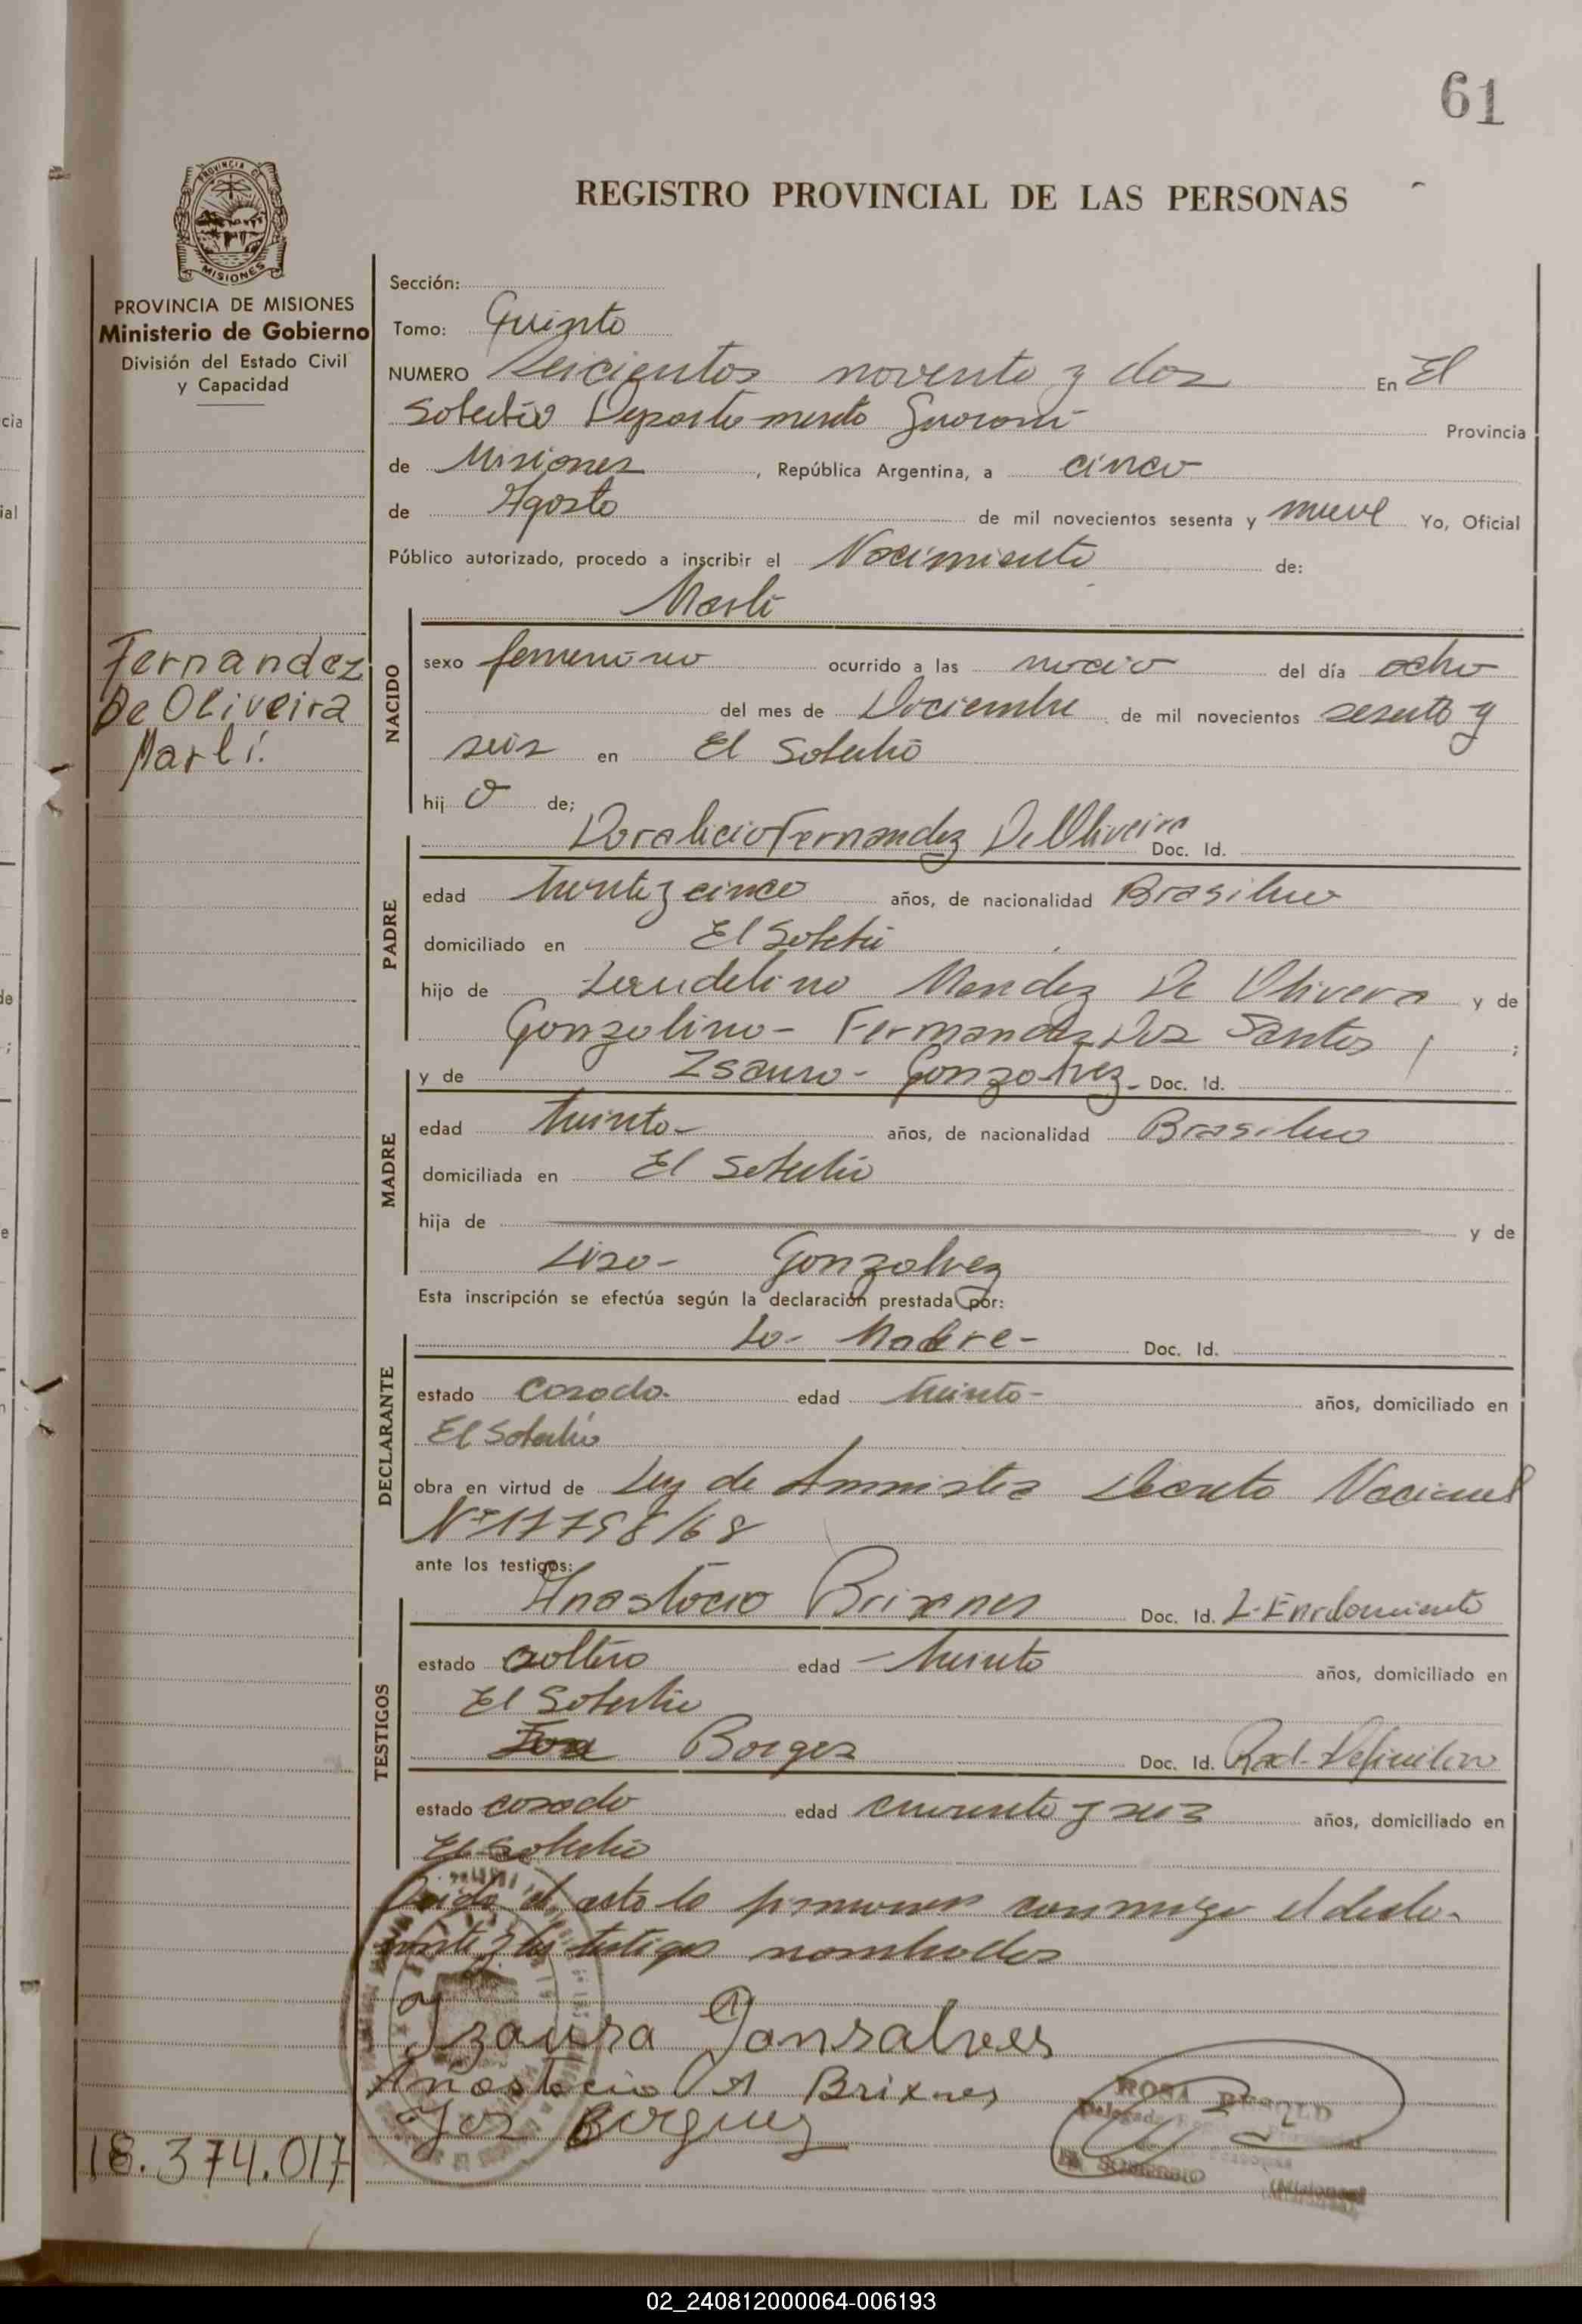 61
PROVINCIA DE MISIONES
REGISTRO PROVINCIAL DE LAS PERSONAS
PROVINCIA DE MISIONES
Ministerio de Gobierno
División del Estado Civil
y Capacidad
Sección:
Tomo: Quinto
NUMERO Seiscientos noventa y dos En El
Soberbio Departamento Guarani Provincia
de Misiones, República Argentina, a cinco
de Agosto de mil novecientos sesenta y nueve Yo, Oficial
Público autorizado, procedo a inscribir el Nacimiento de:
Marli
Fernandez
De Oliveira
Marlí.
NACIDO
sexo femenino ocurrido a las del día ocho
del mes de Diciembre de mil novecientos sesenta y
seis en El Soberbio
hij a de;
Doralicio Fernandez De Oliveira Doc. Id.
PADRE
edad treinta y cinco años, de nacionalidad Brasilera
domiciliado en El Soberbio
hijo de Laudelino Mendez De Olivera y de
Gonzalina - Fernandez Dos Santos ;
y de Isaura - Gonzalvez - Doc. Id.
MADRE
edad treinta - años, de nacionalidad Brasilera
domiciliada en El Soberbio
hija de y de
Lisa - Gonzalvez
Esta inscripción se efectúa según la declaración prestada por:
La - Madre - Doc. Id.
DECLARANTE
estado casada - edad treinta - años, domiciliado en
El Soberbio
obra en virtud de Ley de Amnistia Decreto Nacional
Nº 17798/68
ante los testigos:
Anastacio Brixner Doc. Id. L. Enrolamiento
TESTIGOS
estado soltero edad - treinta años, domiciliado en
El Soberbio
Borges Doc. Id. Rad. Definitiva
estado casado edad cuarenta y seis años, domiciliado en
El Soberbio
Leida el acta la firman conmigo el decla-
rante y los testigos nombrados
Izaura Gonsalves
Anastacio Brixner
18.374.017
EL SOBERBIO (Misiones)
02_240812000064-006193